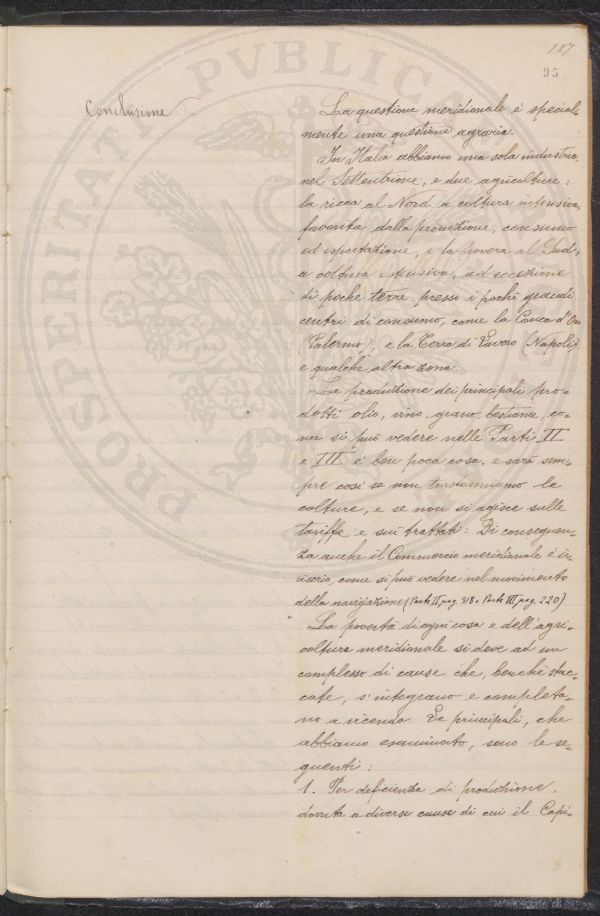 187
95
Conclusione
La questione meridionale è special-
mente una questione agraria.
In Italia abbiamo una sola industria,
nel Settentrione, e due agricolture:
la ricca al Nord a coltura intensiva,
favorita dalla protezione, consumo
ed esportazione, e la povera al Sud,
a coltura estensiva, ad eccezione
di poche terre presso i pochi grandi
centri di consumo, come la Conca d'Oro
(Palermo), e la Terra di Lavoro (Napoli)
e qualche altra zona.
La produzione dei principali pro-
dotti olio, vino, grano, bestiame, co-
me si può vedere nelle Parti II
e III è ben poca cosa, e sarà sem-
pre così se non trasformiamo le
colture, e se non si agisce sulle
tariffe e sui trattati: Di conseguen-
za anche il Commercio meridionale è ir-
risorio, come si può vedere nel movimento
della navigazione (Parte II pag. 318 e Parte III pag. 220)
La povertà di ogni cosa e dell'agri-
coltura meridionale si deve ad un
complesso di cause che, benchè stac-
cate, s'integrano e completa-
no a vicenda. Le principali, che
abbiamo esaminato, sono le se-
guenti:
1. Per deficienza di produzione,
dovuta a diverse cause di cui il Capi-
PROSPERITATI PVBLICAE